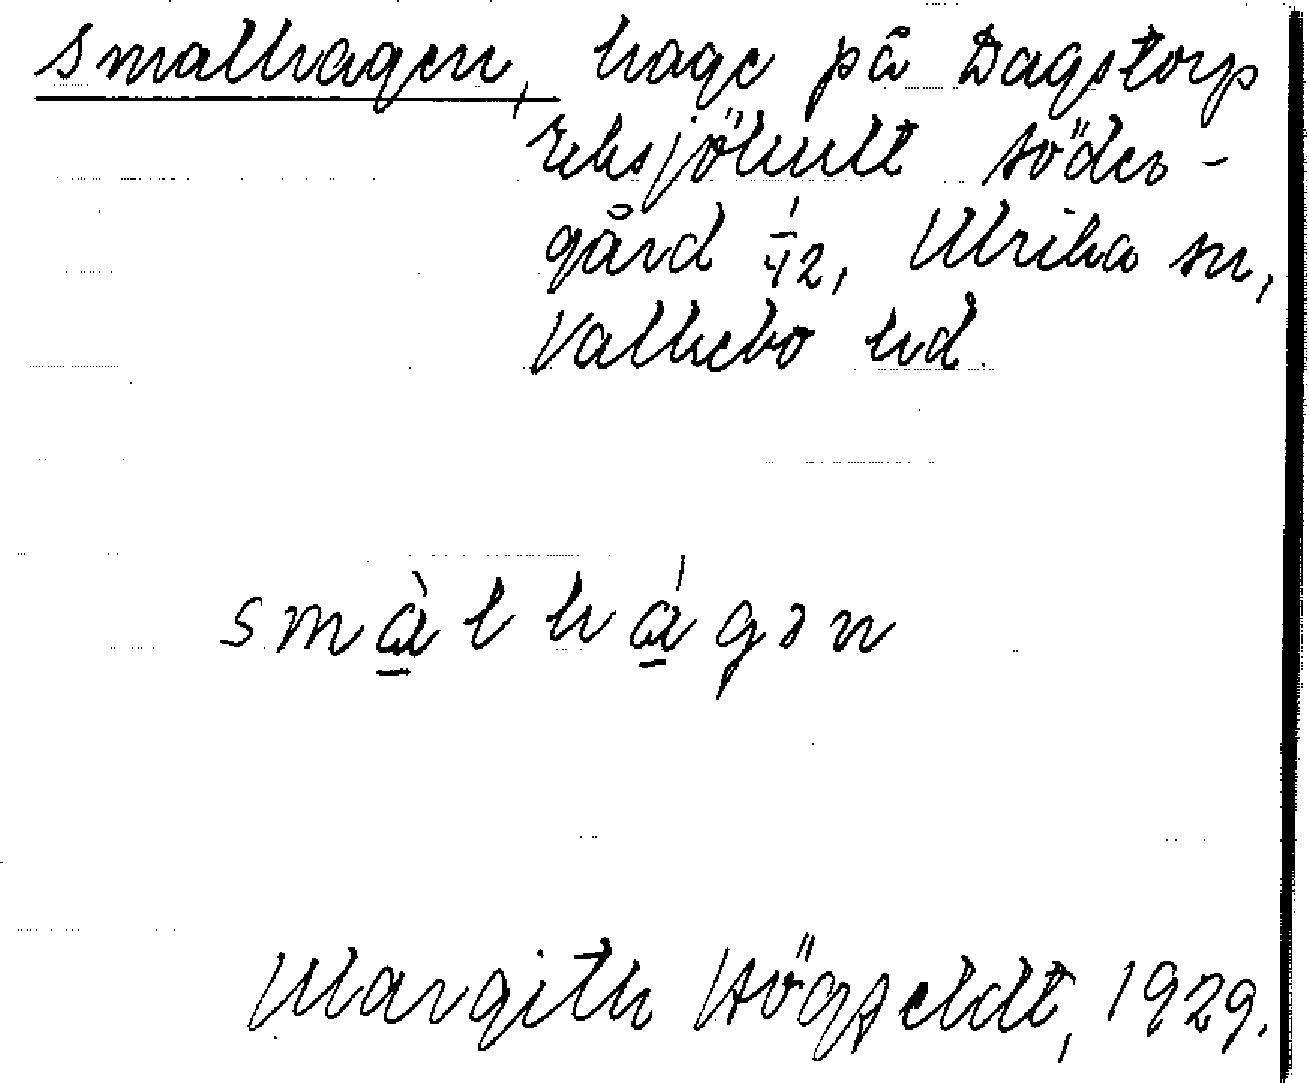 Smalhagen, hage på Dagstorp
Eksjöhult söder-
gård 1/12, Ulrika sn,
Valkebo hd.
smàlhágən
Margith Högfeldt, 1929.